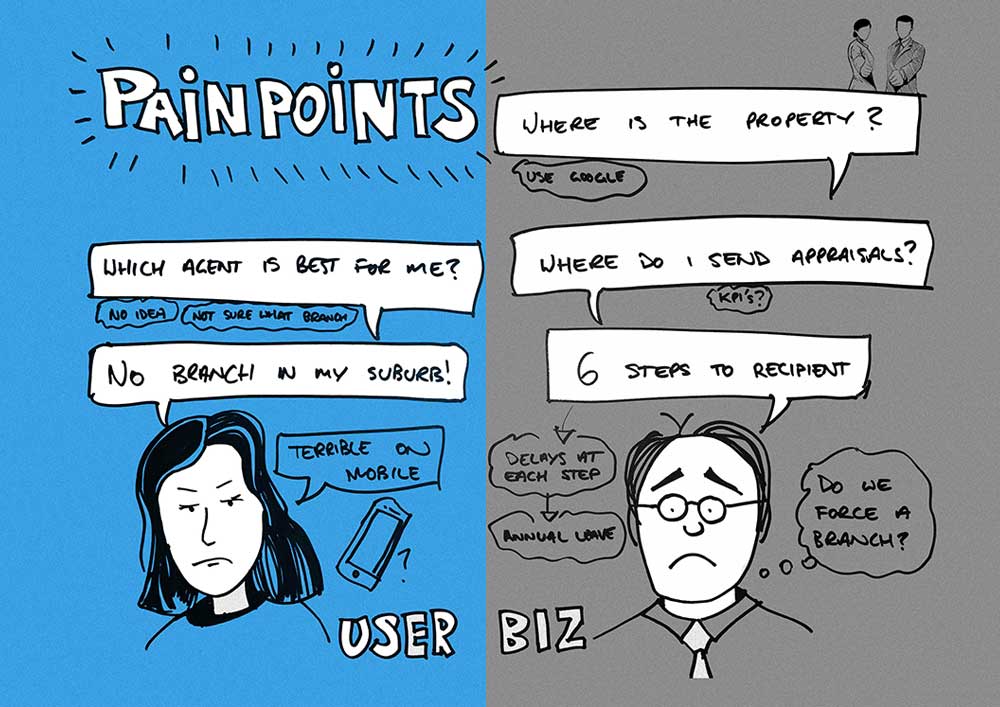 PAIN POINTS
WHICH AGENT IS BEST FOR ME?
NO IDEA
NOT SURE WHAT BRANCH
NO BRANCH IN MY SUBURB!
TERRIBLE ON
MOBILE
?
USER
WHERE IS THE PROPERTY?
USE GOOGLE
WHERE DO I SEND APPRAISALS?
KPI's?
6 STEPS TO RECIPIENT
DELAYS AT
EACH STEP
ANNUAL LEAVE
DO WE
FORCE A
BRANCH?
BIZ